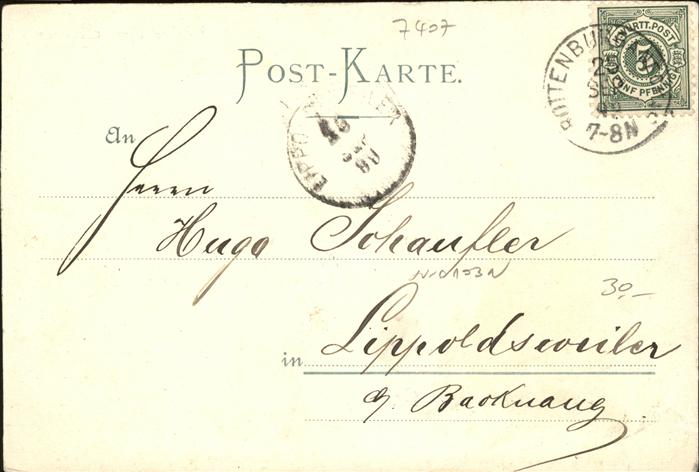 7407
POST-KARTE.
WÜRTT. POST
5
FÜNF PFENNIG
ROTTENBURG
25
SEP
7-8N
An
LIPPOLDSWEILER
Herrn
Hugo Schaufler
30,-
in Lippoldsweiler
Backnang